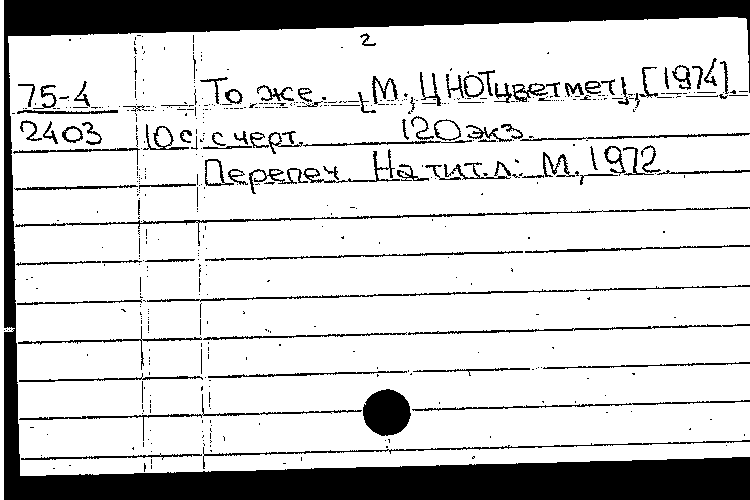 2
75-4 То же. [М., ЦНОТцветмет], [1974].
2403 10 с. с черт. 120 экз.
Перепеч. На тит. л.: М., 1972.